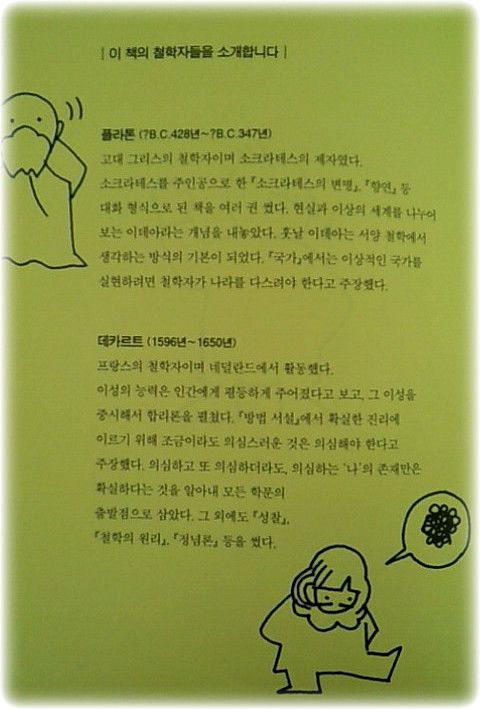 | 이 책의 철학자들을 소개합니다 |
플라톤 (?B.C.428년~?B.C.347년)
고대 그리스의 철학자이며 소크라테스의 제자였다.
소크라테스를 주인공으로 한 『소크라테스의 변명』, 『향연』 등
대화 형식으로 된 책을 여러 권 썼다. 현실과 이상의 세계를 나누어
보는 이데아라는 개념을 내놓았다. 훗날 이데아는 서양 철학에서
생각하는 방식의 기본이 되었다. 『국가』에서는 이상적인 국가를
실현하려면 철학자가 나라를 다스려야 한다고 주장했다.
데카르트 (1596년~1650년)
프랑스의 철학자이며 네덜란드에서 활동했다.
이성의 능력은 인간에게 평등하게 주어졌다고 보고, 그 이성을
중시해서 합리론을 펼쳤다. 『방법 서설』에서 확실한 진리에
이르기 위해 조금이라도 의심스러운 것은 의심해야 한다고
주장했다. 의심하고 또 의심하더라도, 의심하는 '나'의 존재만은
확실하다는 것을 알아내 모든 학문의
출발점으로 삼았다. 그 외에도 『성찰』,
『철학의 원리』, 『정념론』 등을 썼다.